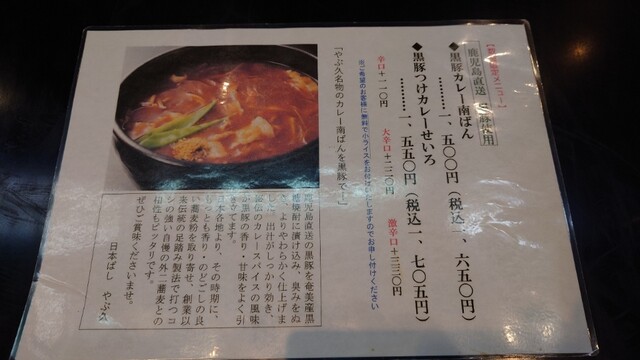 メニュー】
鹿児島直送
使用
◆黒豚カレー南ばん
…………一、五〇〇円（税込一、六五〇円）
◆黒豚つけカレーせいろ
…………一、五五〇円（税込一、七〇五円）
辛口＋一一〇円　大辛口＋二二〇円　激辛口＋三三〇円
ご希望のお客様に無料で小ライスをお付けしますのでお申し付けください
「やぶ久名物のカレー南ばんを黒豚で！」
鹿児島直送の黒豚を奄美産黒
糖焼酎に漬け込み、臭みをぬ
き、よりやわらかく仕上げま
した。出汁がしっかり効き、
秘伝のカレースパイスの風味
が黒豚の香り・甘味をよく引
き立てます。
日本各地より、その時期に、
もっとも香り・のどごしの良
い蕎麦粉を取り寄せ、創業以
来伝統の足踏み製法で打つコ
シの強い自慢の外二蕎麦との
相性もピッタリです。
ぜひご賞味くださいませ。
日本ばし　やぶ久